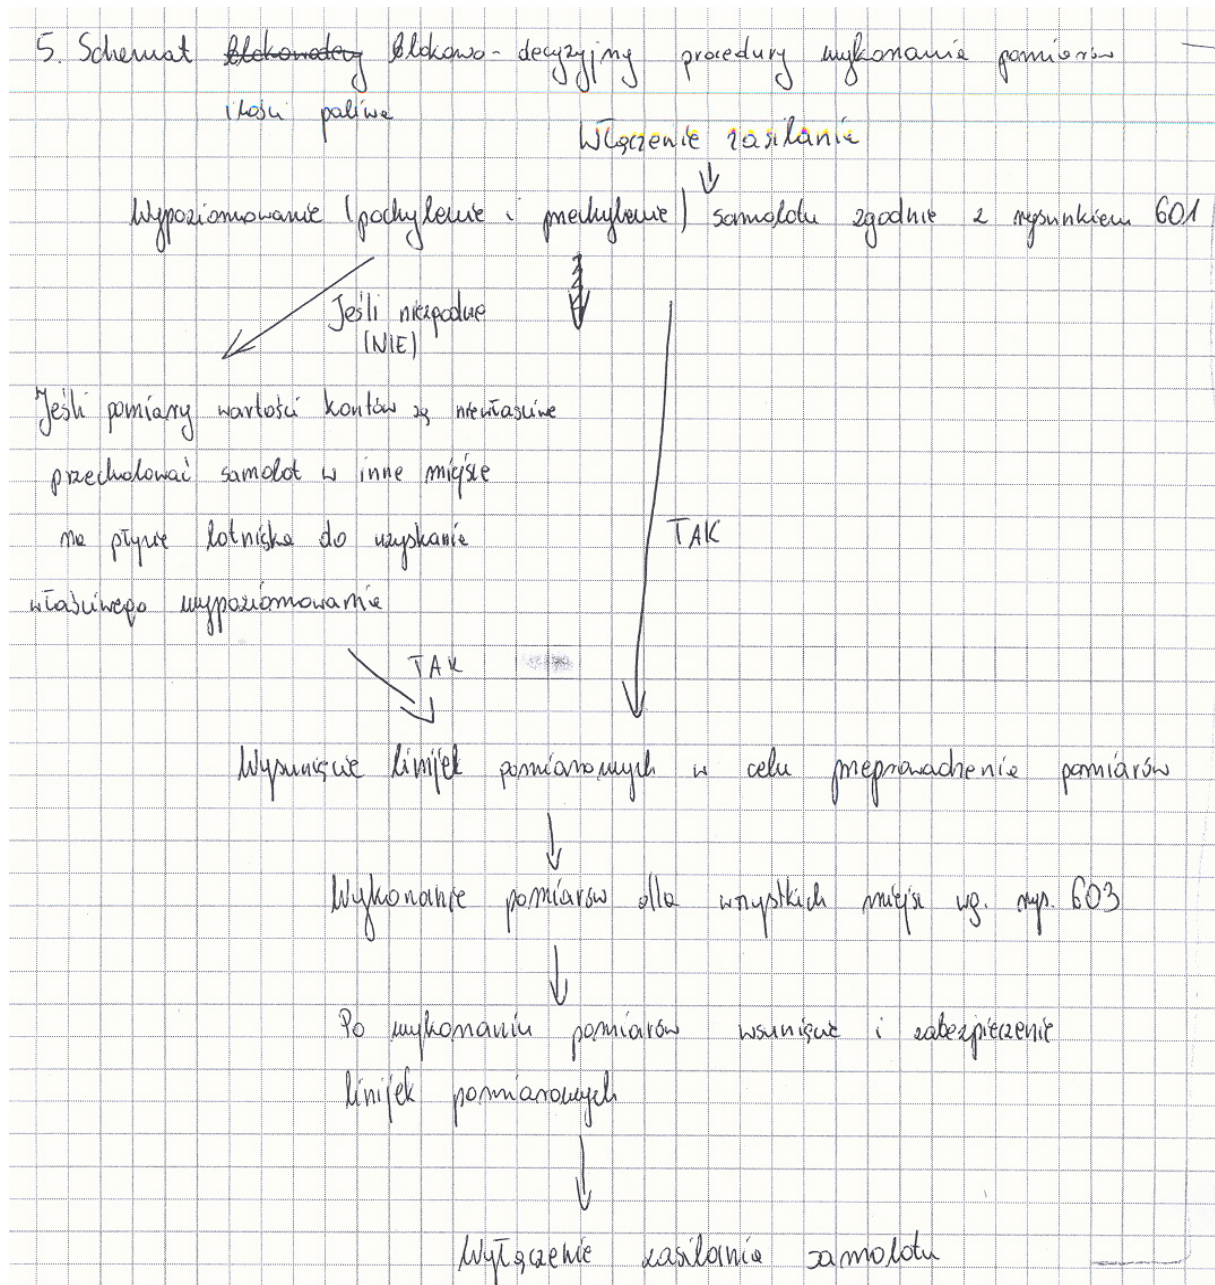 5. Schemat blokowo-decyzyjny procedury wykonania pomiarów
ilości paliwa
Włączenie zasilania
Wypoziomowanie (pochylenie i przechylenie) samolotu zgodnie z rysunkiem 601
Jeśli niezgodne
(NIE)
Jeśli pomiary wartości kontów są niewłaściwe
przecholować samolot w inne miejsce
na płycie lotniska do uzyskania
właściwego wypoziomowania
TAK
TAK
Wysunięcie linijek pomiarowych w celu przeprowadzenia pomiarów
Wykonanie pomiarów dla wszystkich miejsc wg. rys. 603
Po wykonaniu pomiarów wsunięcie i zabezpieczenie
linijek pomiarowych
Wyłączenie zasilania samolotu